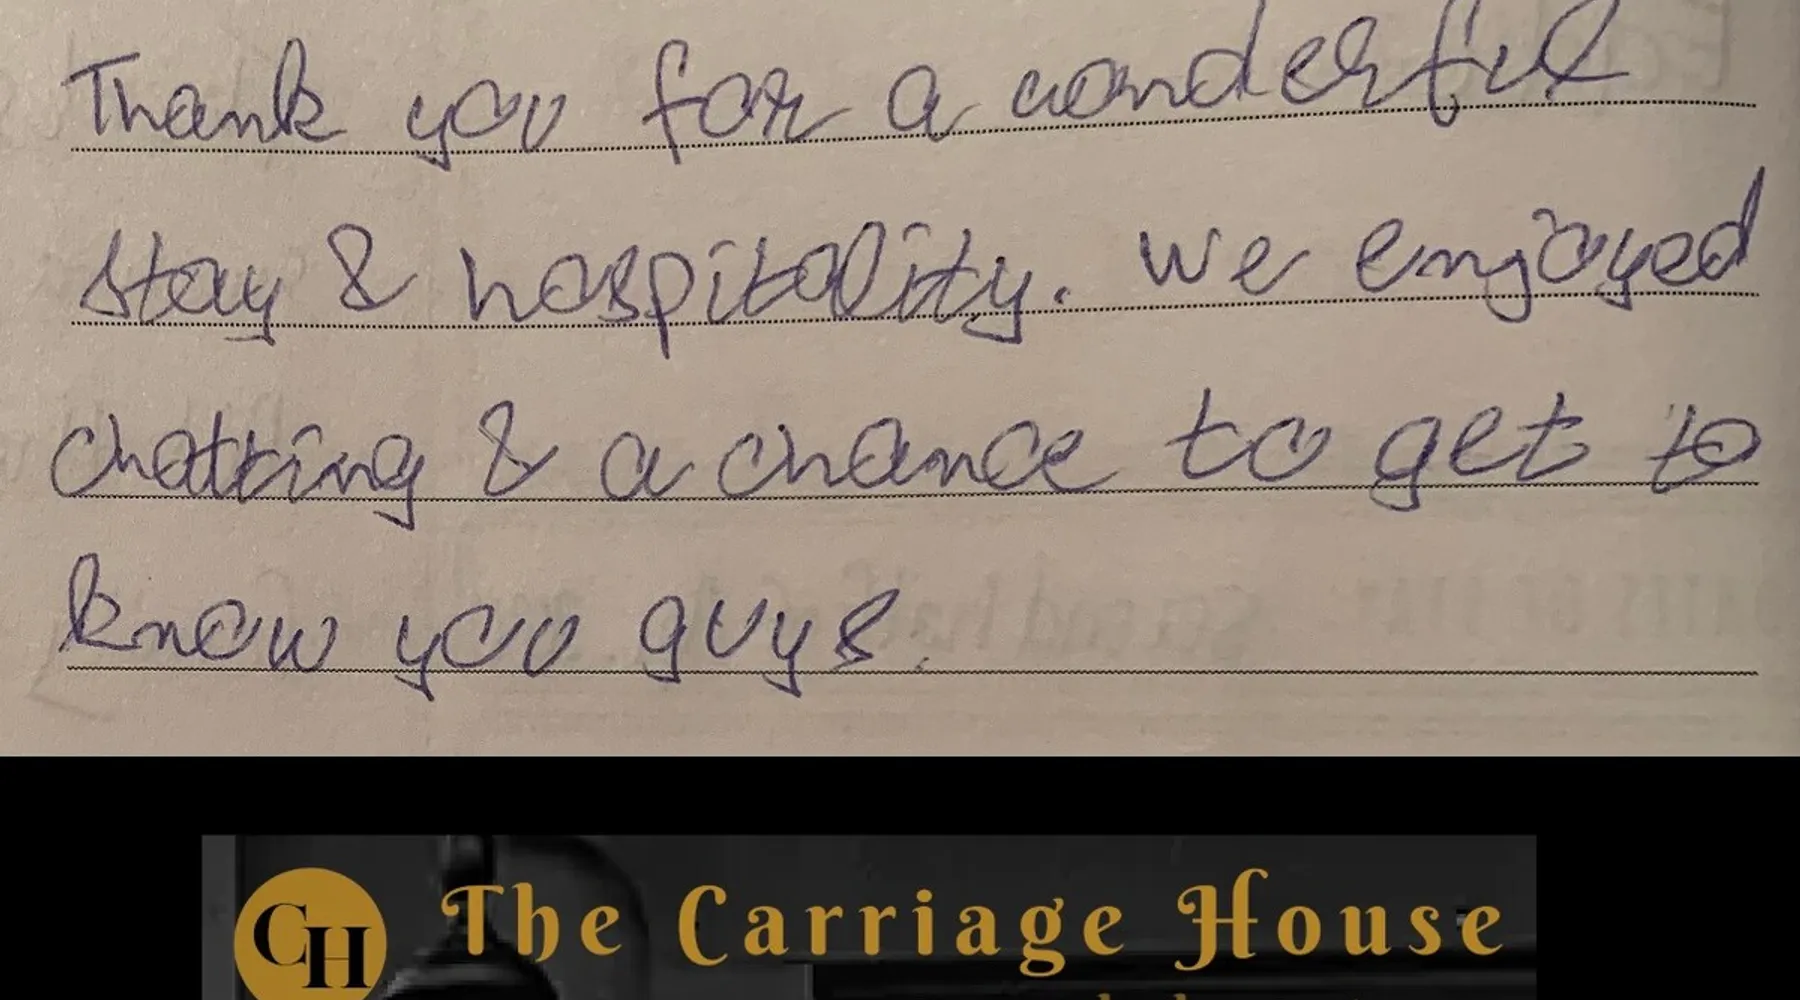 Thank you for a wonderful
stay & hospitality. We enjoyed
chatting & a chance to get to
know you guys.
CH The Carriage House